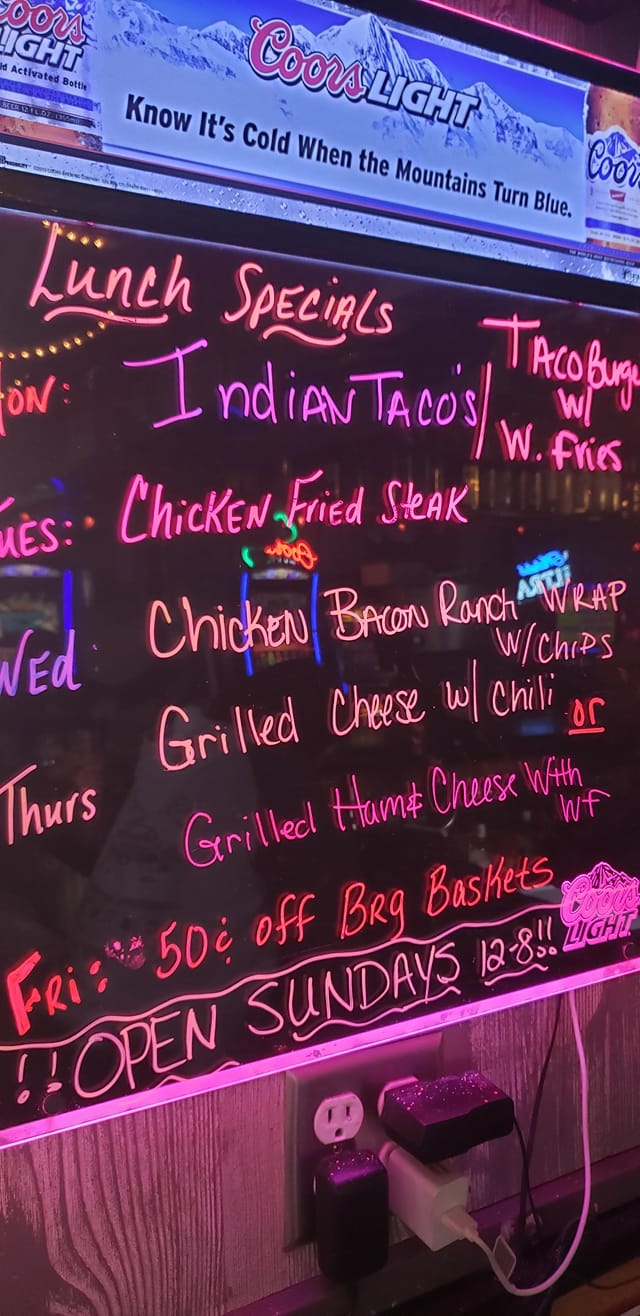 Coors
LIGHT
Coors LIGHT
Know It's Cold When the Mountains Turn Blue.
Lunch Specials
ON: Indian Taco's/ Taco Burge
w/
W. Fries
UES: Chicken Fried Steak
Wed Chicken Bacon Ranch Wrap
w/Chips
Thurs Grilled Cheese w/ Chili or
Grilled Ham & Cheese With
WF
Fri: 50¢ off Brg Baskets
Coors
LIGHT
!!OPEN SUNDAYS 12-8!!